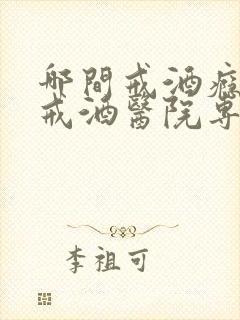 那間戒酒癮
戒酒醫院專
李祖可